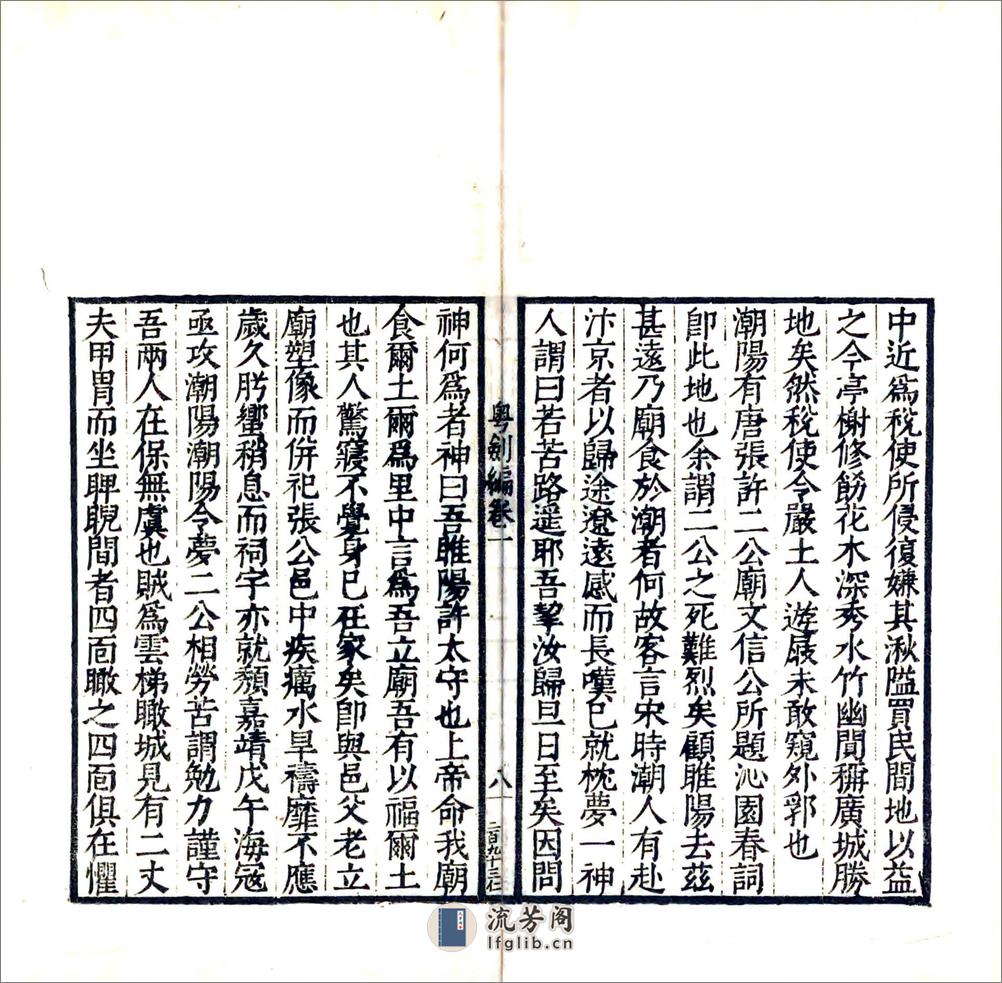 中近爲稅使所侵復嫌其湫隘買民間地以益
之今亭榭修飭花木深秀水竹幽閒稱廣城勝
地矣然稅使令嚴土人遊屐未敢窺外郛也
潮陽有唐張許二公廟文信公所題沁園春詞
卽此地也余謂二公之死難烈矣顧睢陽去茲
甚遠乃廟食於潮者何故客言宋時潮人有赴
汴京者以歸途遼遠感而長嘆已就枕夢一神
人謂曰若苦路遥耶吾挈汝歸旦日至矣因問
粤劍編卷一
八
二百九十三
神何爲者神曰吾睢陽許太守也上帝命我廟
食爾土爾爲里中言爲吾立廟吾有以福爾土
也其人驚寤不覺身已在家矣卽與邑父老立
廟塑像而併祀張公邑中疾癘水旱禱靡不應
歲久肹蠁稍息而祠宇亦就頹嘉靖戊午海冦
亟攻潮陽潮陽令夢二公相勞苦謂勉力謹守
吾兩人在保無虞也賊爲雲梯瞰城見有二丈
夫甲胄而坐睥睨間者四面瞰之四面俱在懼
流芳阁
lfglib.cn